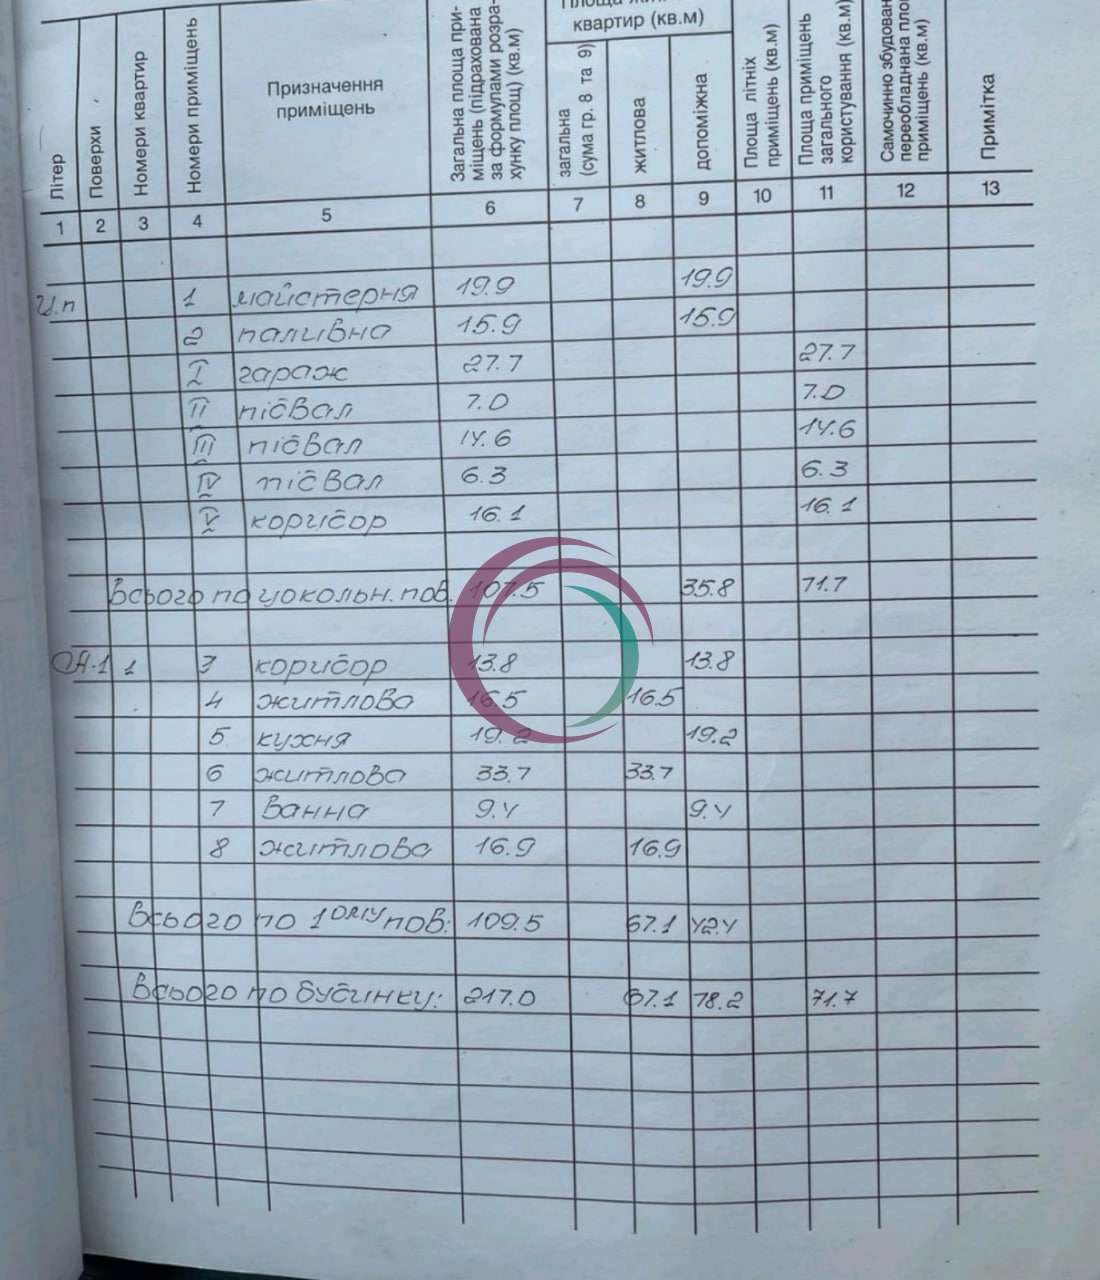 Літер
Поверхи
Номери квартир
Номери приміщень
Призначення приміщень
Загальна площа при-
міщень (підрахована
за формулами розра-
хунку площ) (кв.м)
квартир (кв.м)
загальна
(сума гр. 8 та 9)
житлова
допоміжна
Площа літніх
приміщень (кв.м)
Площа приміщень
загального
користування (кв.м)
Самочинно збудован
переобладнана пло
приміщень (кв.м)
Примітка
1 2 3 4 5 6 7 8 9 10 11 12 13
Ц.п 1 майстерня 19.9 19.9
2 паливна 15.9 15.9
I гараж 27.7 27.7
II підвал 7.0 7.0
III підвал 14.6 14.6
IV підвал 6.3 6.3
V коридор 16.1 16.1
Всього по цокольн. пов. 107.5 35.8 71.7
1 3 коридор 13.8 13.8
4 житлова 16.5 16.5
5 кухня 19.2 19.2
6 житлова 33.7 33.7
7 ванна 9.4 9.4
8 житлова 16.9 16.9
Всього по 1ому пов: 109.5 67.1 42.4
Всього по будинку: 217.0 67.1 78.2 71.7